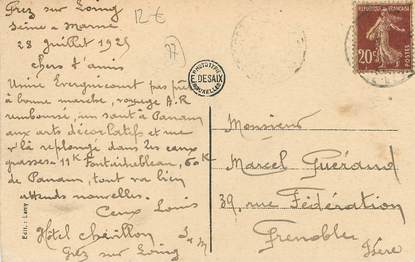 Grez sur Loing
Seine & Marne
28 Juillet 1925
12 €
77
chers t'amis
Usine pas
à bonne marche, voyage A.R
remboursé, un saut à Panam
aux arts décoratifs et me
v'là replongé dans les eaux
grasses 11K Fontainebleau, 60K
de Panam, tout va bien
attends nouvelles.
Ceux Louis
Hôtel chevillon S & M
Grez sur Loing
PHOTOTYPIE
DESAIX
BRUXELLES
Edit.: Lavy
REPUBLIQUE FRANÇAISE
20c
Monsieur
Marcel Guéraud
39, rue Fédération
Grenoble
Isère